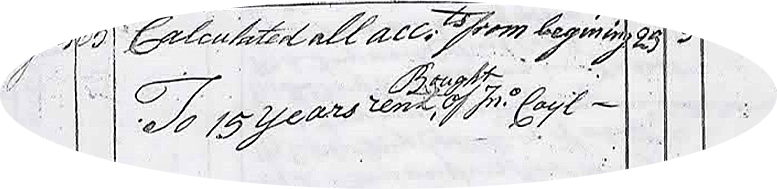 Calculated all acc.ts from begining 23
Bought
To 15 years rent, of Jn.o Coyl –